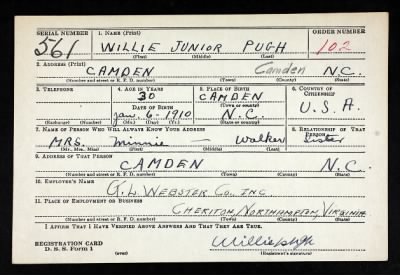 SERIAL NUMBER 1. NAME (Print) ORDER NUMBER
561 WILLIE JUNIOR PUGH 102
(First) (Middle) (Last)
2. ADDRESS (Print)
CAMDEN Camden N.C.
(Number and street or R. F. D. number) (Town) (County) (State)
3. TELEPHONE 4. AGE IN YEARS 5. PLACE OF BIRTH 6. COUNTRY OF CITIZENSHIP
30 CAMDEN
DATE OF BIRTH (Town or county)
Jan. 6- 1910 N.C. U.S.A.
(Exchange) (Number) (Mo.) (Day) (Yr.) (State or country)
7. NAME OF PERSON WHO WILL ALWAYS KNOW YOUR ADDRESS 8. RELATIONSHIP OF THAT PERSON
MRS. Minnie — Walker Sister
(Mr., Mrs., Miss) (First) (Middle) (Last)
9. ADDRESS OF THAT PERSON
CAMDEN N.C.
(Number and street or R. F. D. number) (Town) (County) (State)
10. EMPLOYER'S NAME
G.L. WEBSTER CO. INC
11. PLACE OF EMPLOYMENT OR BUSINESS
CHERITON, NORTHAMPTON, VIRGINIA
(Number and street or R. F. D. number) (Town) (County) (State)
I AFFIRM THAT I HAVE VERIFIED ABOVE ANSWERS AND THAT THEY ARE TRUE.
REGISTRATION CARD
D. S. S. Form 1 (over) (Registrant's signature)